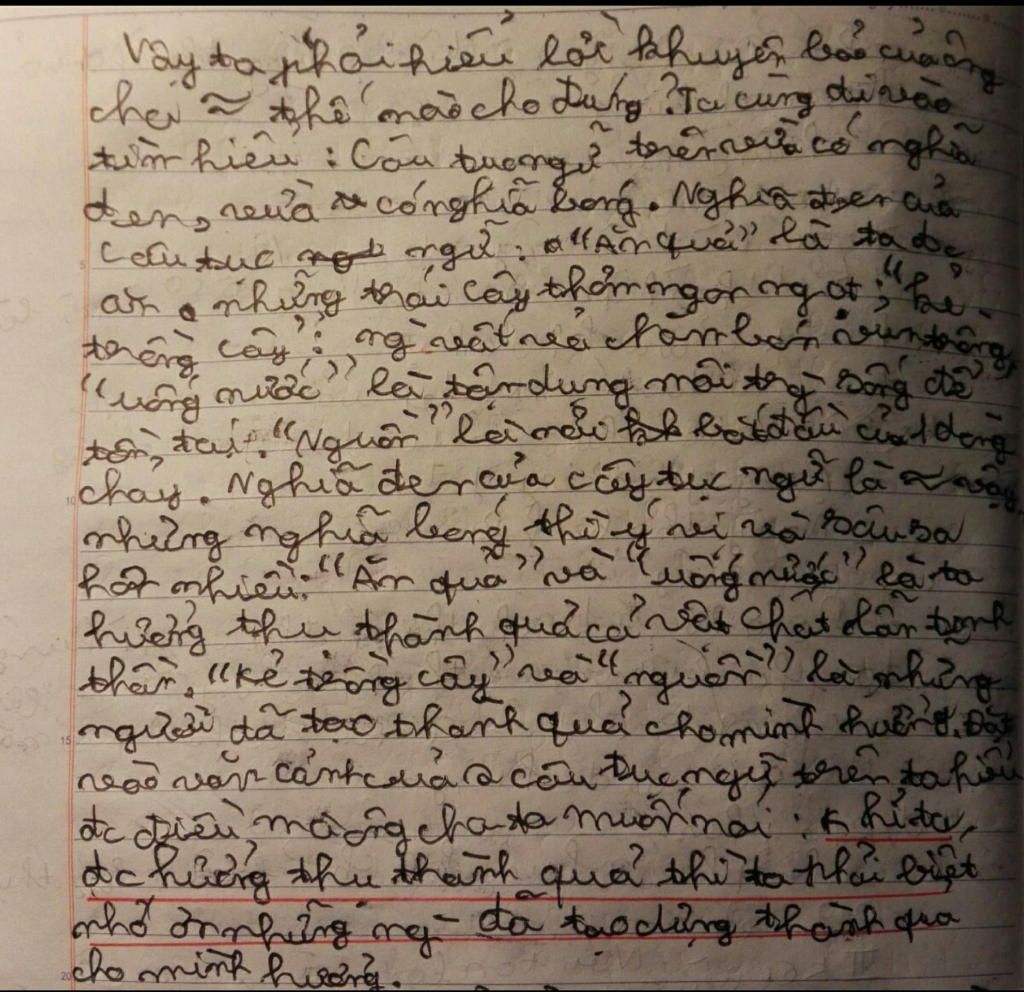 Vậy ta phải hiểu lời khuyên bảo của ông
cha ≈ thế nào cho đúng? Ta cùng đi vào
tìm hiểu: Câu tục ngữ trên vừa có nghĩa
đen, vừa có nghĩa bóng. Nghĩa đen của
câu tục ngữ: "Ăn quả" là ta đc
ăn những trái cây thơm ngon ngọt; "kẻ
trồng cây": ng vất vả chăm bón vun trồng,
"uống nước" là tận dụng môi trg sống để
tồn tại. "Nguồn" là nơi bắt đầu của 1 dòng
chảy. Nghĩa đen của câu tục ngữ là ≈ vậy
nhưng nghĩa bóng thì ý vị và sâu sa
hơn nhiều: "Ăn quả" và "uống nước" là ta
hưởng thụ thành quả cả vật chất lẫn tinh
thần. "Kẻ trồng cây" và "nguồn" là những
người đã tạo thành quả cho mình hưởng. Đặt
vào văn cảnh của 2 câu tục ngữ trên ta hiểu
đc điều mà ông cha ta muốn nói: Khi ta
đc hưởng thụ thành quả thì ta phải biết
nhớ ơn những ng đã tạo dựng thành quả
cho mình hưởng.